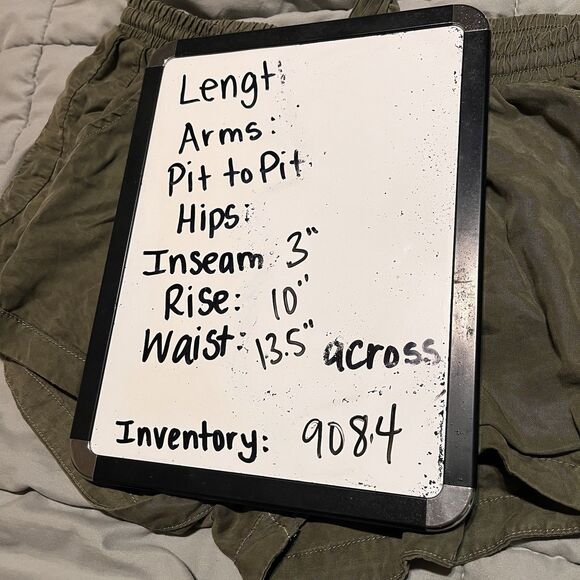 Lengt
Arms:
Pit to Pit
Hips:
Inseam: 3"
Rise: 10"
Waist: 13.5" across
Inventory: 908.4